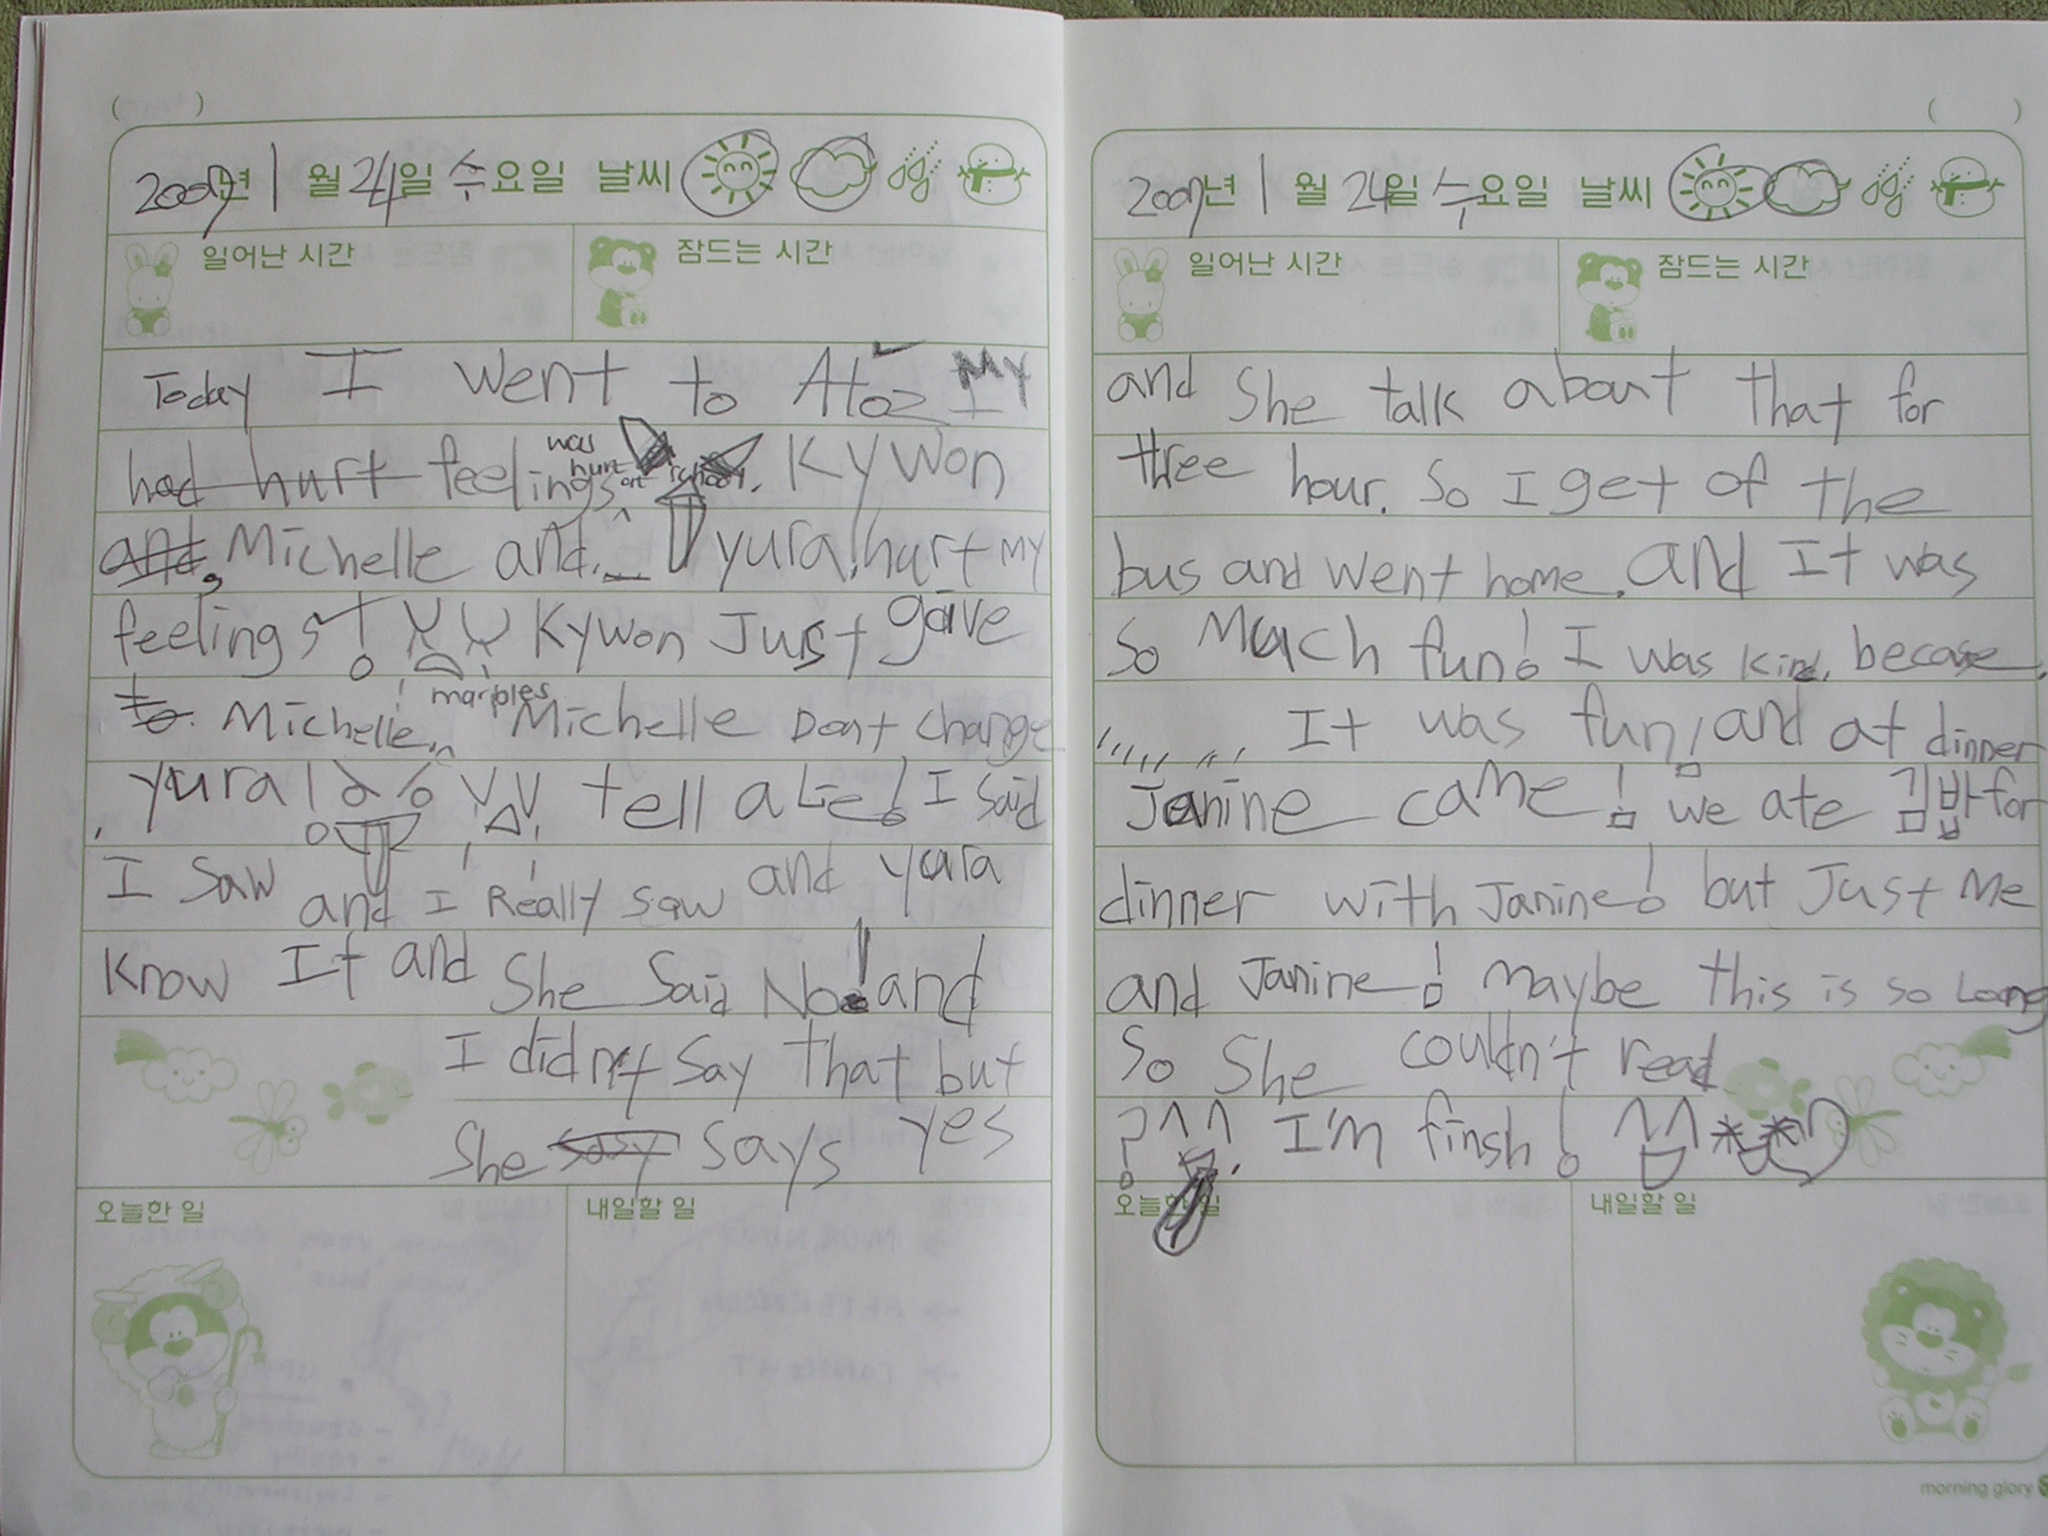 ( )
2007년 1 월 24일 수요일 날씨
일어난 시간 잠드는 시간
Today I went to Atoz My
had hurt feelings was hurt at school. Kywon
and, Michelle and. yura! hurt my
feelings! Kywon Just gave
to. Michelle marbles Michelle Dont change
, yura! tell a Lie! I said
I saw and I Really saw and yura
Know It and She Said No! and
I didn't say that but
She sasy says yes
오늘한 일 내일할 일
( )
2007년 1 월 24일 수요일 날씨
일어난 시간 잠드는 시간
and She talk about that for
three hour. So I get of the
bus and went home. and It was
So Much fun! I was kind, becase,
,,,,, ,,, It was fun! and at dinner
Janine came! we ate 김밥 for
dinner with Janine! but Just Me
and Janine! maybe this is so Long
So She couldn't read
?^^. I'm finsh! ^^
오늘한 일 내일할 일
morning glory